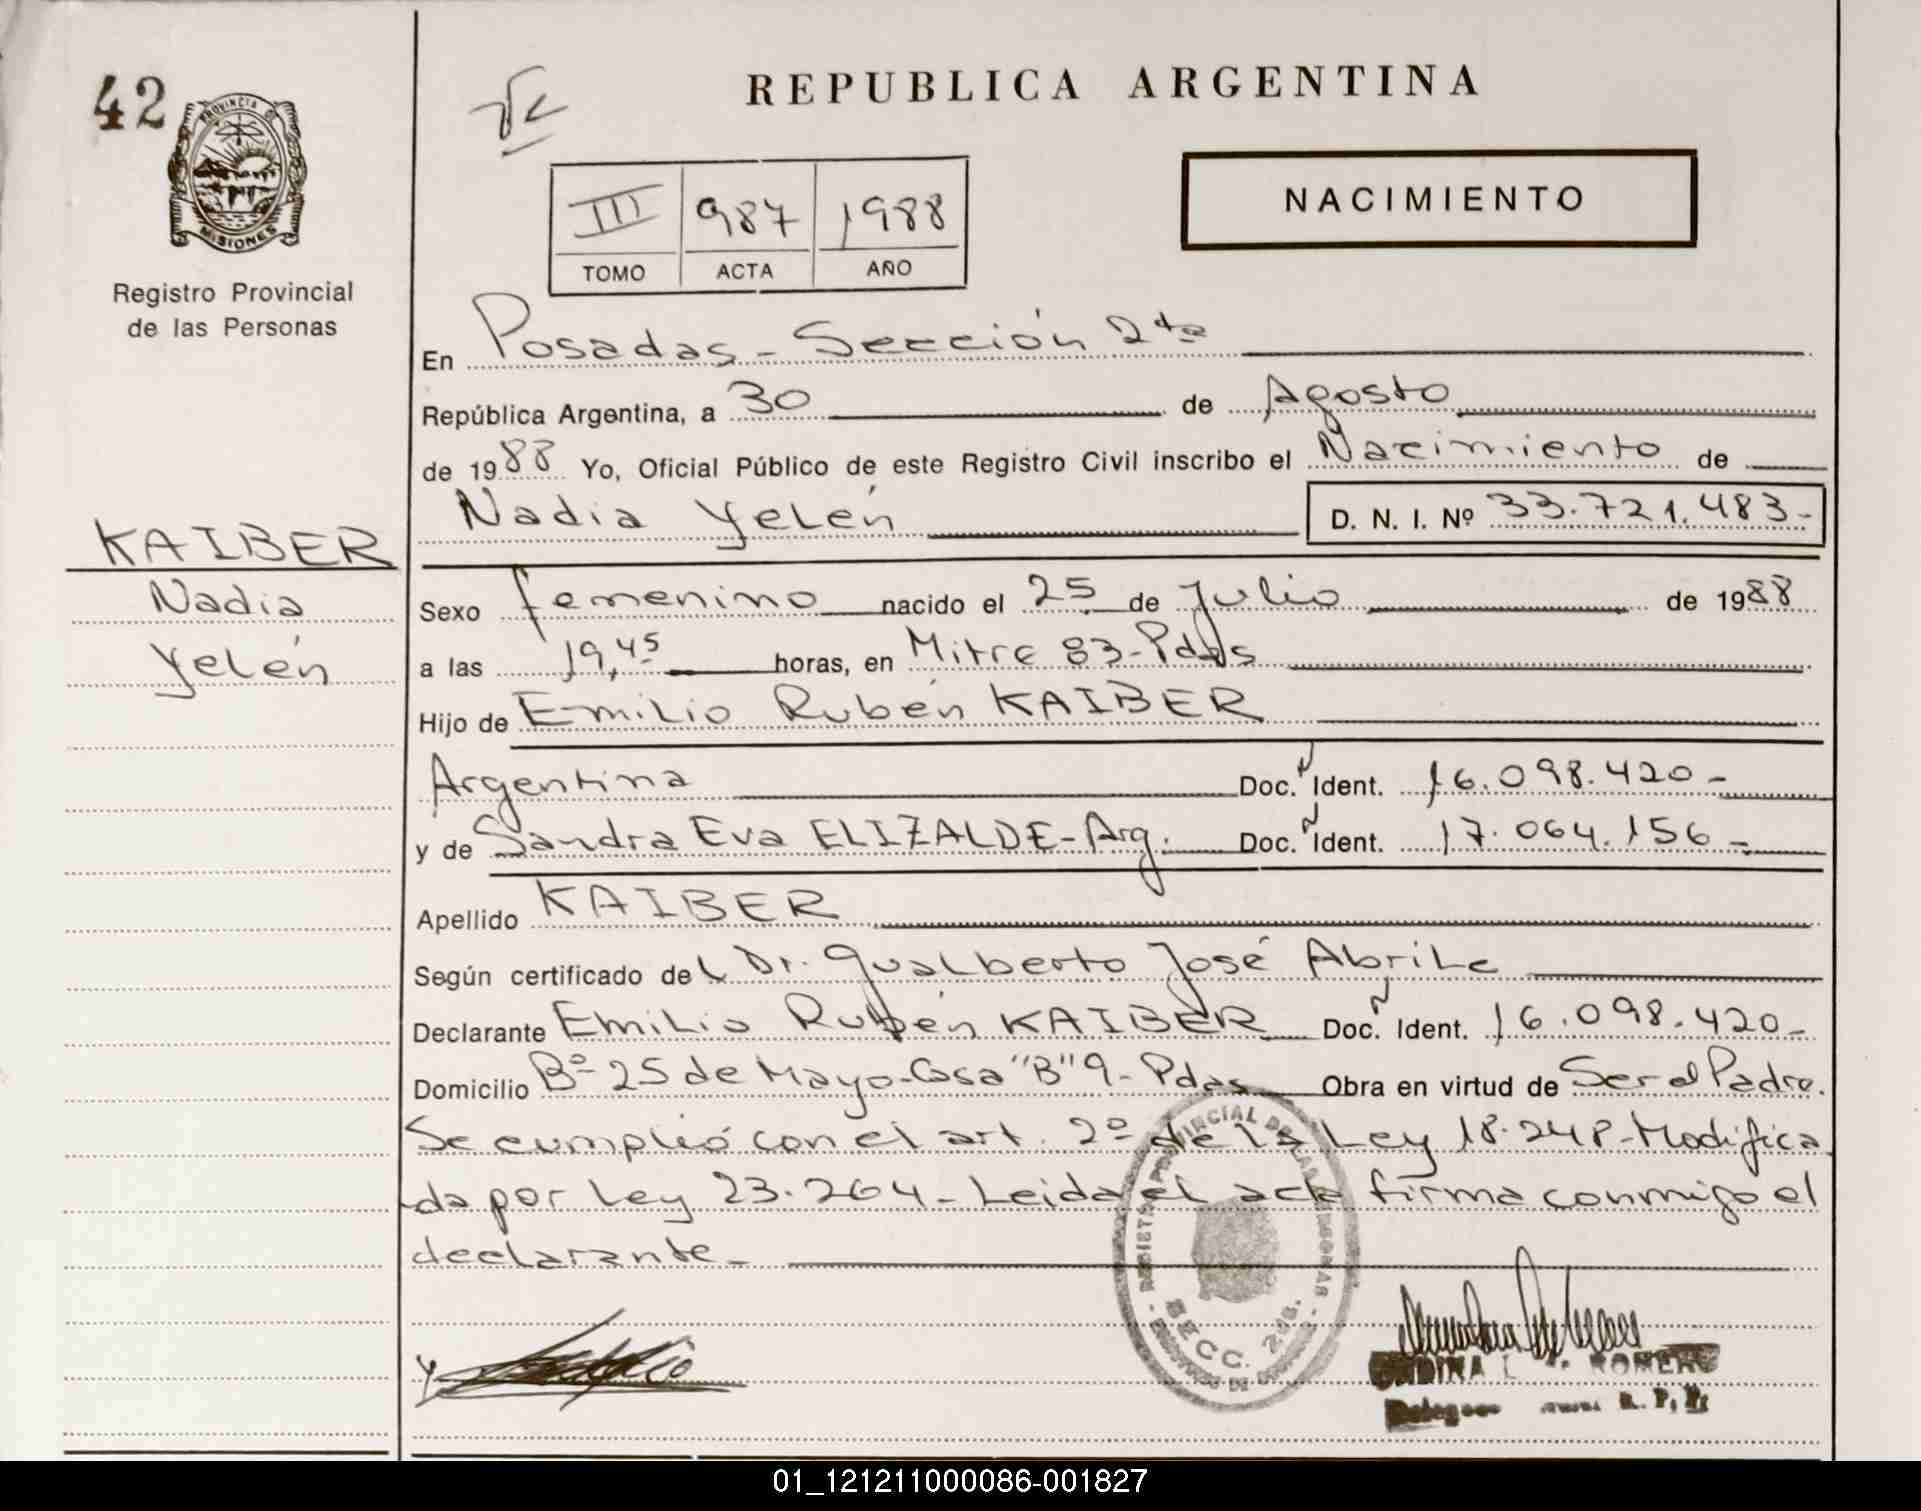 42
PROVINCIA DE
MISIONES
Registro Provincial
de las Personas
KAIBER
Nadia
Yelén
REPUBLICA ARGENTINA
NACIMIENTO
III 987 1988
TOMO ACTA AÑO
En Posadas - Sección 2da
República Argentina, a 30 de Agosto
de 1988 Yo, Oficial Público de este Registro Civil inscribo el Nacimiento de
Nadia Yelén D. N. I. Nº 33.721.483-
Sexo femenino nacido el 25 de Julio de 1988
a las 19,45 horas, en Mitre 83-Pdas
Hijo de Emilio Rubén KAIBER
Argentina Doc. N Ident. 16.098.420-
y de Sandra Eva ELIZALDE-Arg. Doc. N Ident. 17.064.156-
Apellido KAIBER
Según certificado del Dr. Gualberto José Abrile
Declarante Emilio Rubén KAIBER Doc. N Ident. 16.098.420-
Domicilio Bº 25 de Mayo-Casa "B" 9- Pdas Obra en virtud de Ser el Padre.
Se cumplió con el art. 2º de la Ley 18.248-Modifica
da por Ley 23.264-Leida el acta firma conmigo el
declarante-
SECC. 2da.
ROMERO
R. P. P.
01_121211000086-001827